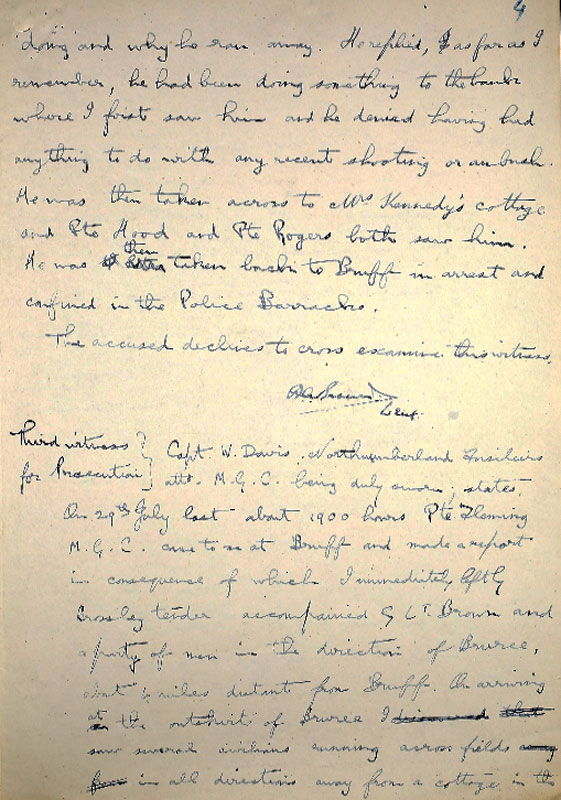 4
doing and why he ran away. He replied, as far as I
remember, he had been doing something to the bank
where I first saw him and he denied having had
anything to do with any recent shooting or ambush.
He was then taken across to Mrs Kennedy's cottage
and Pte Hood and Pte Rogers both saw him.
then
He was taken back to Bruff in arrest and
confined in the Police Barracks.
The accused declines to cross examine this witness.
Brown
Lieut.
Third witness } Capt W. Davis. Northumberland Fusiliers
for Prosecution } attd. M.G.C. being duly sworn, states,
On 29th July last about 1900 hours Pte Fleming
M.G.C. came to me at Bruff and made a report
in consequence of which I immediately left by
Crossley tender accompained by Lt Brown and
a party of men in the direction of Bruree,
about 6 miles distant from Bruff. On arriving
at the outskirts of Bruree I that
saw several civilians running across fields away
from in all directions away from a cottage in the